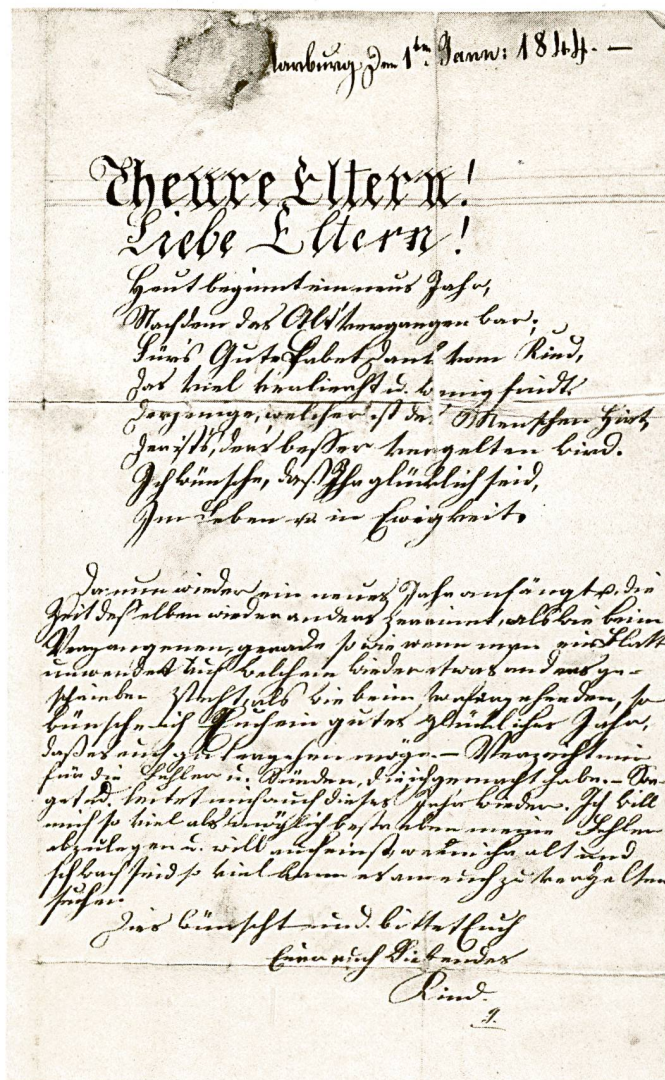 arburg den 1ten Jann: 1844. —
Theure Eltern!
Liebe Eltern!
Heut beginnt ein neus Jahr,
Nachdem das Alt vergangen war;
Fürs Gute habet Dank vom Kind,
Das viel verliert u. wenig findt
Derjenige, welcher ist der Menschen Hirt
Der ists, ders besser vergelten wird.
Ich wünsche, daß Ihr glücklich seid,
Im Leben u. in Ewigkeit.
Da nun wieder ein neues Jahr anfängt u. die
Zeit desselben wieder anders, als wie beim
Vergangenen, gerade so wie wenn man ein Blatt
umwendet auf welchem wieder etwas anders ge-
schrieben steht, als wie beim, so
wünsche ich Euch ein gutes glückliches Jahr,
daß es euch gut ergehen möge. — Verzeiht mir
für die Fehler u. Sünden, die ich gemacht habe. —
leitet mich auch dieses Jahr wieder. Ich will
mich so viel als möglich bestreben meine Fehler
abzulegen u. will auch einst, wenn ihr alt und
schwach seid so viel kann es an euch zu vergelten
suchen.
Dies wünscht und bittet Euch
Euer euch Liebendes
Kind.